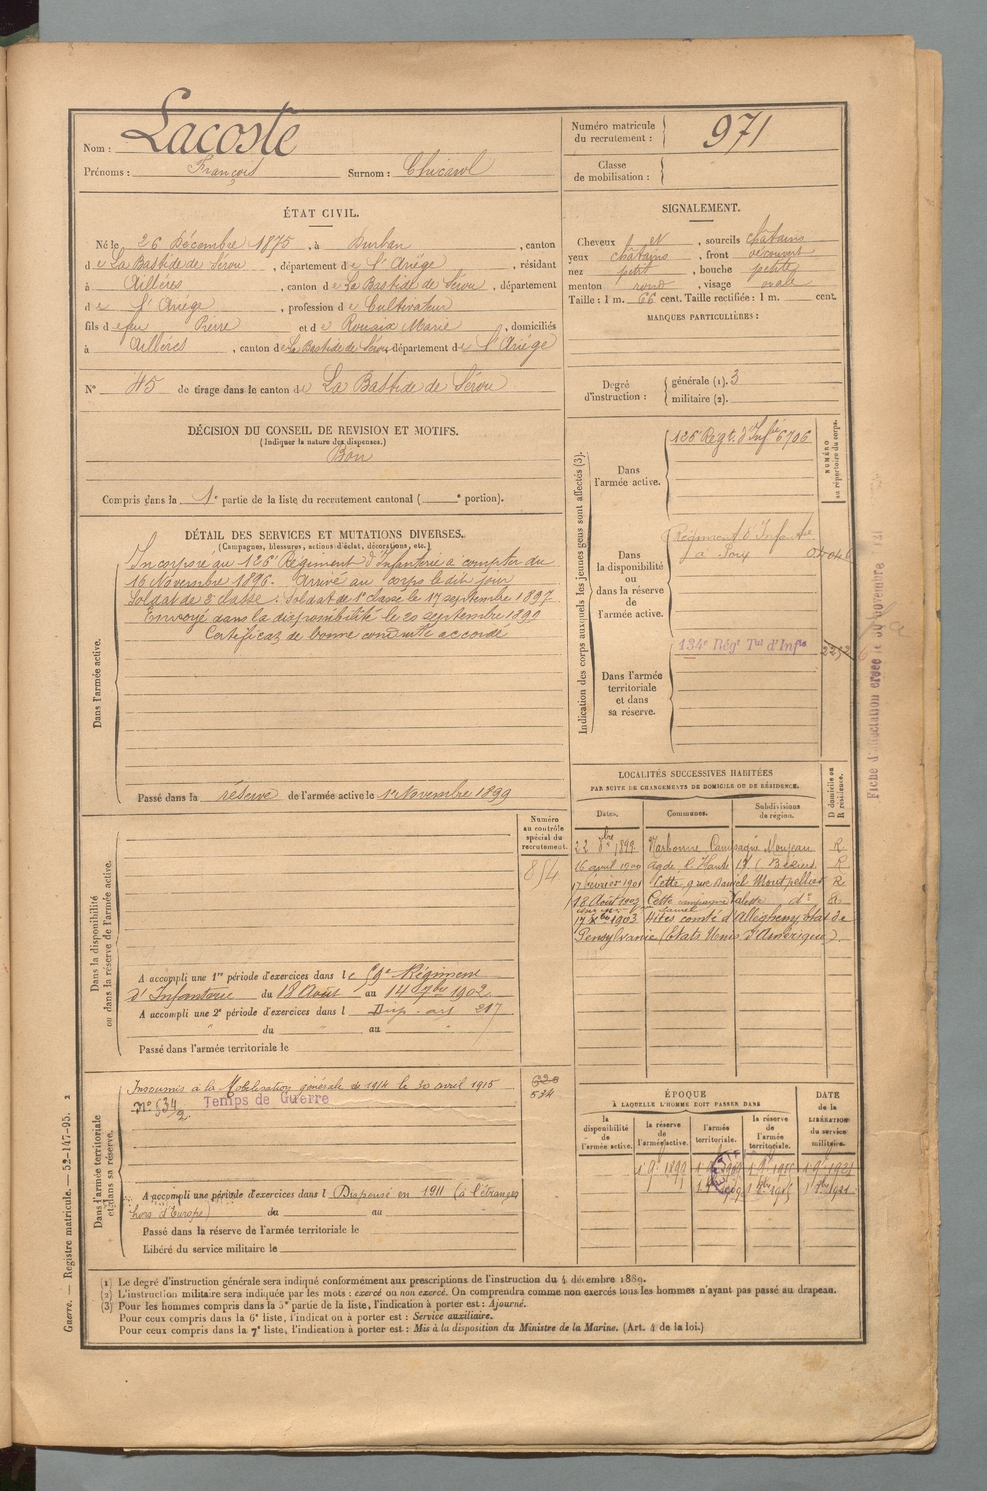 Nom : Lacoste
Prénoms : François Surnom : Chicarol
Numéro matricule du recrutement : 971
Classe de mobilisation :
ÉTAT CIVIL.
Né le 26 Décembre 1875, à Durban, canton
de La Bastide de Sérou, département de l'Ariège, résidant
à Aillères, canton de La Bastide de Sérou, département
de l'Ariège, profession de Cultivateur
fils de feu Pierre et de Rouaix Marie, domiciliés
à Aillères, canton de La Bastide de Sérou, département de l'Ariège
N° 45 de tirage dans le canton de La Bastide de Sérou
SIGNALEMENT.
Cheveux et, sourcils châtains
yeux châtains, front découvert
nez petit, bouche petite
menton rond, visage ovale
Taille : 1 m. 66 cent. Taille rectifiée : 1 m. cent.
MARQUES PARTICULIÈRES :
Degré d'instruction : générale (1). 3
militaire (2).
DÉCISION DU CONSEIL DE REVISION ET MOTIFS.
(Indiquer la nature des dispenses.)
Bon
Compris dans la 1e partie de la liste du recrutement cantonal ( e portion).
DÉTAIL DES SERVICES ET MUTATIONS DIVERSES.
(Campagnes, blessures, actions d'éclat, décorations, etc.)
Dans l'armée active.
Incorporé au 126e Régiment d'Infanterie à compter du
16 Novembre 1896. Arrivé au corps le dit jour
Soldat de 2e classe. Soldat de 1e classe le 17 septembre 1897
Envoyé dans la disponibilité le 20 septembre 1899
Certificat de bonne conduite accordé
Passé dans la réserve de l'armée active le 1er Novembre 1899
Indication des corps auxquels les jeunes gens sont affectés (3).
NUMÉRO au répertoire du corps.
Dans l'armée active.
126e Régt. d'Infrie 6706
Dans la disponibilité ou dans la réserve de l'armée active.
Régiment d'Infanterie
à
Dans l'armée territoriale et dans sa réserve.
134e Régt Tal d'Infie
Fiche d'affectation créée le 30 novembre
LOCALITÉS SUCCESSIVES HABITÉES
PAR SUITE DE CHANGEMENTS DE DOMICILE OU DE RÉSIDENCE.
Dates. Communes. Subdivisions de région. D domicile ou R résidence.
22 8bre 1899. Narbonne Campagne Moujean R
16 avril 1900 Agde l'Hault (Béziers R
17 février 1901 Cette, 9 rue Daniel Montpellier R
18 Août 1902 Cette campagne Valette do R
17 Xbre 1903. comté d'Allegheny état de
Pensylvanie (Etats Unis d'Amérique)
Dans la disponibilité ou dans la réserve de l'armée active.
Numéro au contrôle spécial du recrutement.
814
A accompli une 1re période d'exercices dans le 59e Régiment
d'Infanterie du 18 Août au 14 7bre 1902
A accompli une 2e période d'exercices dans l Disp. art 217
du au
Passé dans l'armée territoriale le
Dans l'armée territoriale et dans sa réserve.
Insoumis à la Mobilisation générale de 1914 le 30 avril 1915
No 534/2. Temps de Guerre
620
534
A accompli une période d'exercices dans l Dispensé en 1911 (à l'étranger
hors d'Europe) du au
Passé dans la réserve de l'armée territoriale le
Libéré du service militaire le
ÉPOQUE
À LAQUELLE L'HOMME DOIT PASSER DANS
la disponibilité de l'armée active. la réserve de l'armée active. l'armée territoriale. la réserve de l'armée territoriale.
DATE de la LIBÉRATION du service militaire.
1 9e 1899
(1) Le degré d'instruction générale sera indiqué conformément aux prescriptions de l'instruction du 4 décembre 1889.
(2) L'instruction militaire sera indiquée par les mots : exercé ou non exercé. On comprendra comme non exercés tous les hommes n'ayant pas passé au drapeau.
(3) Pour les hommes compris dans la 5e partie de la liste, l'indication à porter est : Ajourné.
Pour ceux compris dans la 6e liste, l'indication à porter est : Service auxiliaire.
Pour ceux compris dans la 7e liste, l'indication à porter est : Mis à la disposition du Ministre de la Marine. (Art. 4 de la loi.)
Guerre. — Registre matricule. — 52-147-95. 2